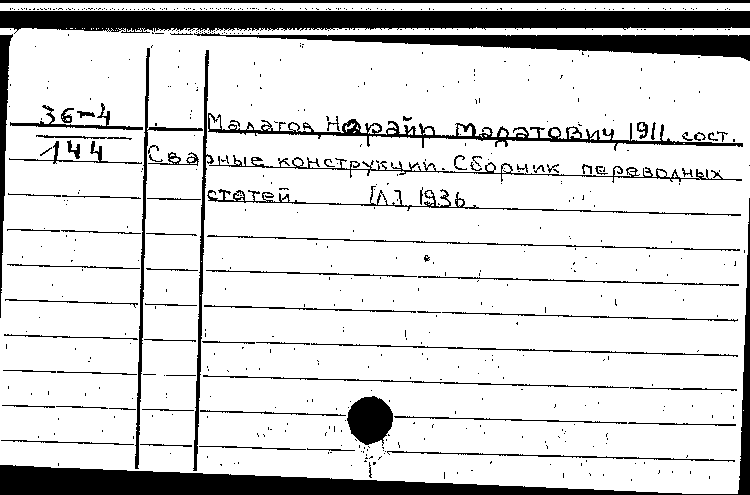 36-4
Маратов, Нарайр Маратович, 1911. сост.
144 Сварные конструкции. Сборник переводных
статей. [Л.], 1936.